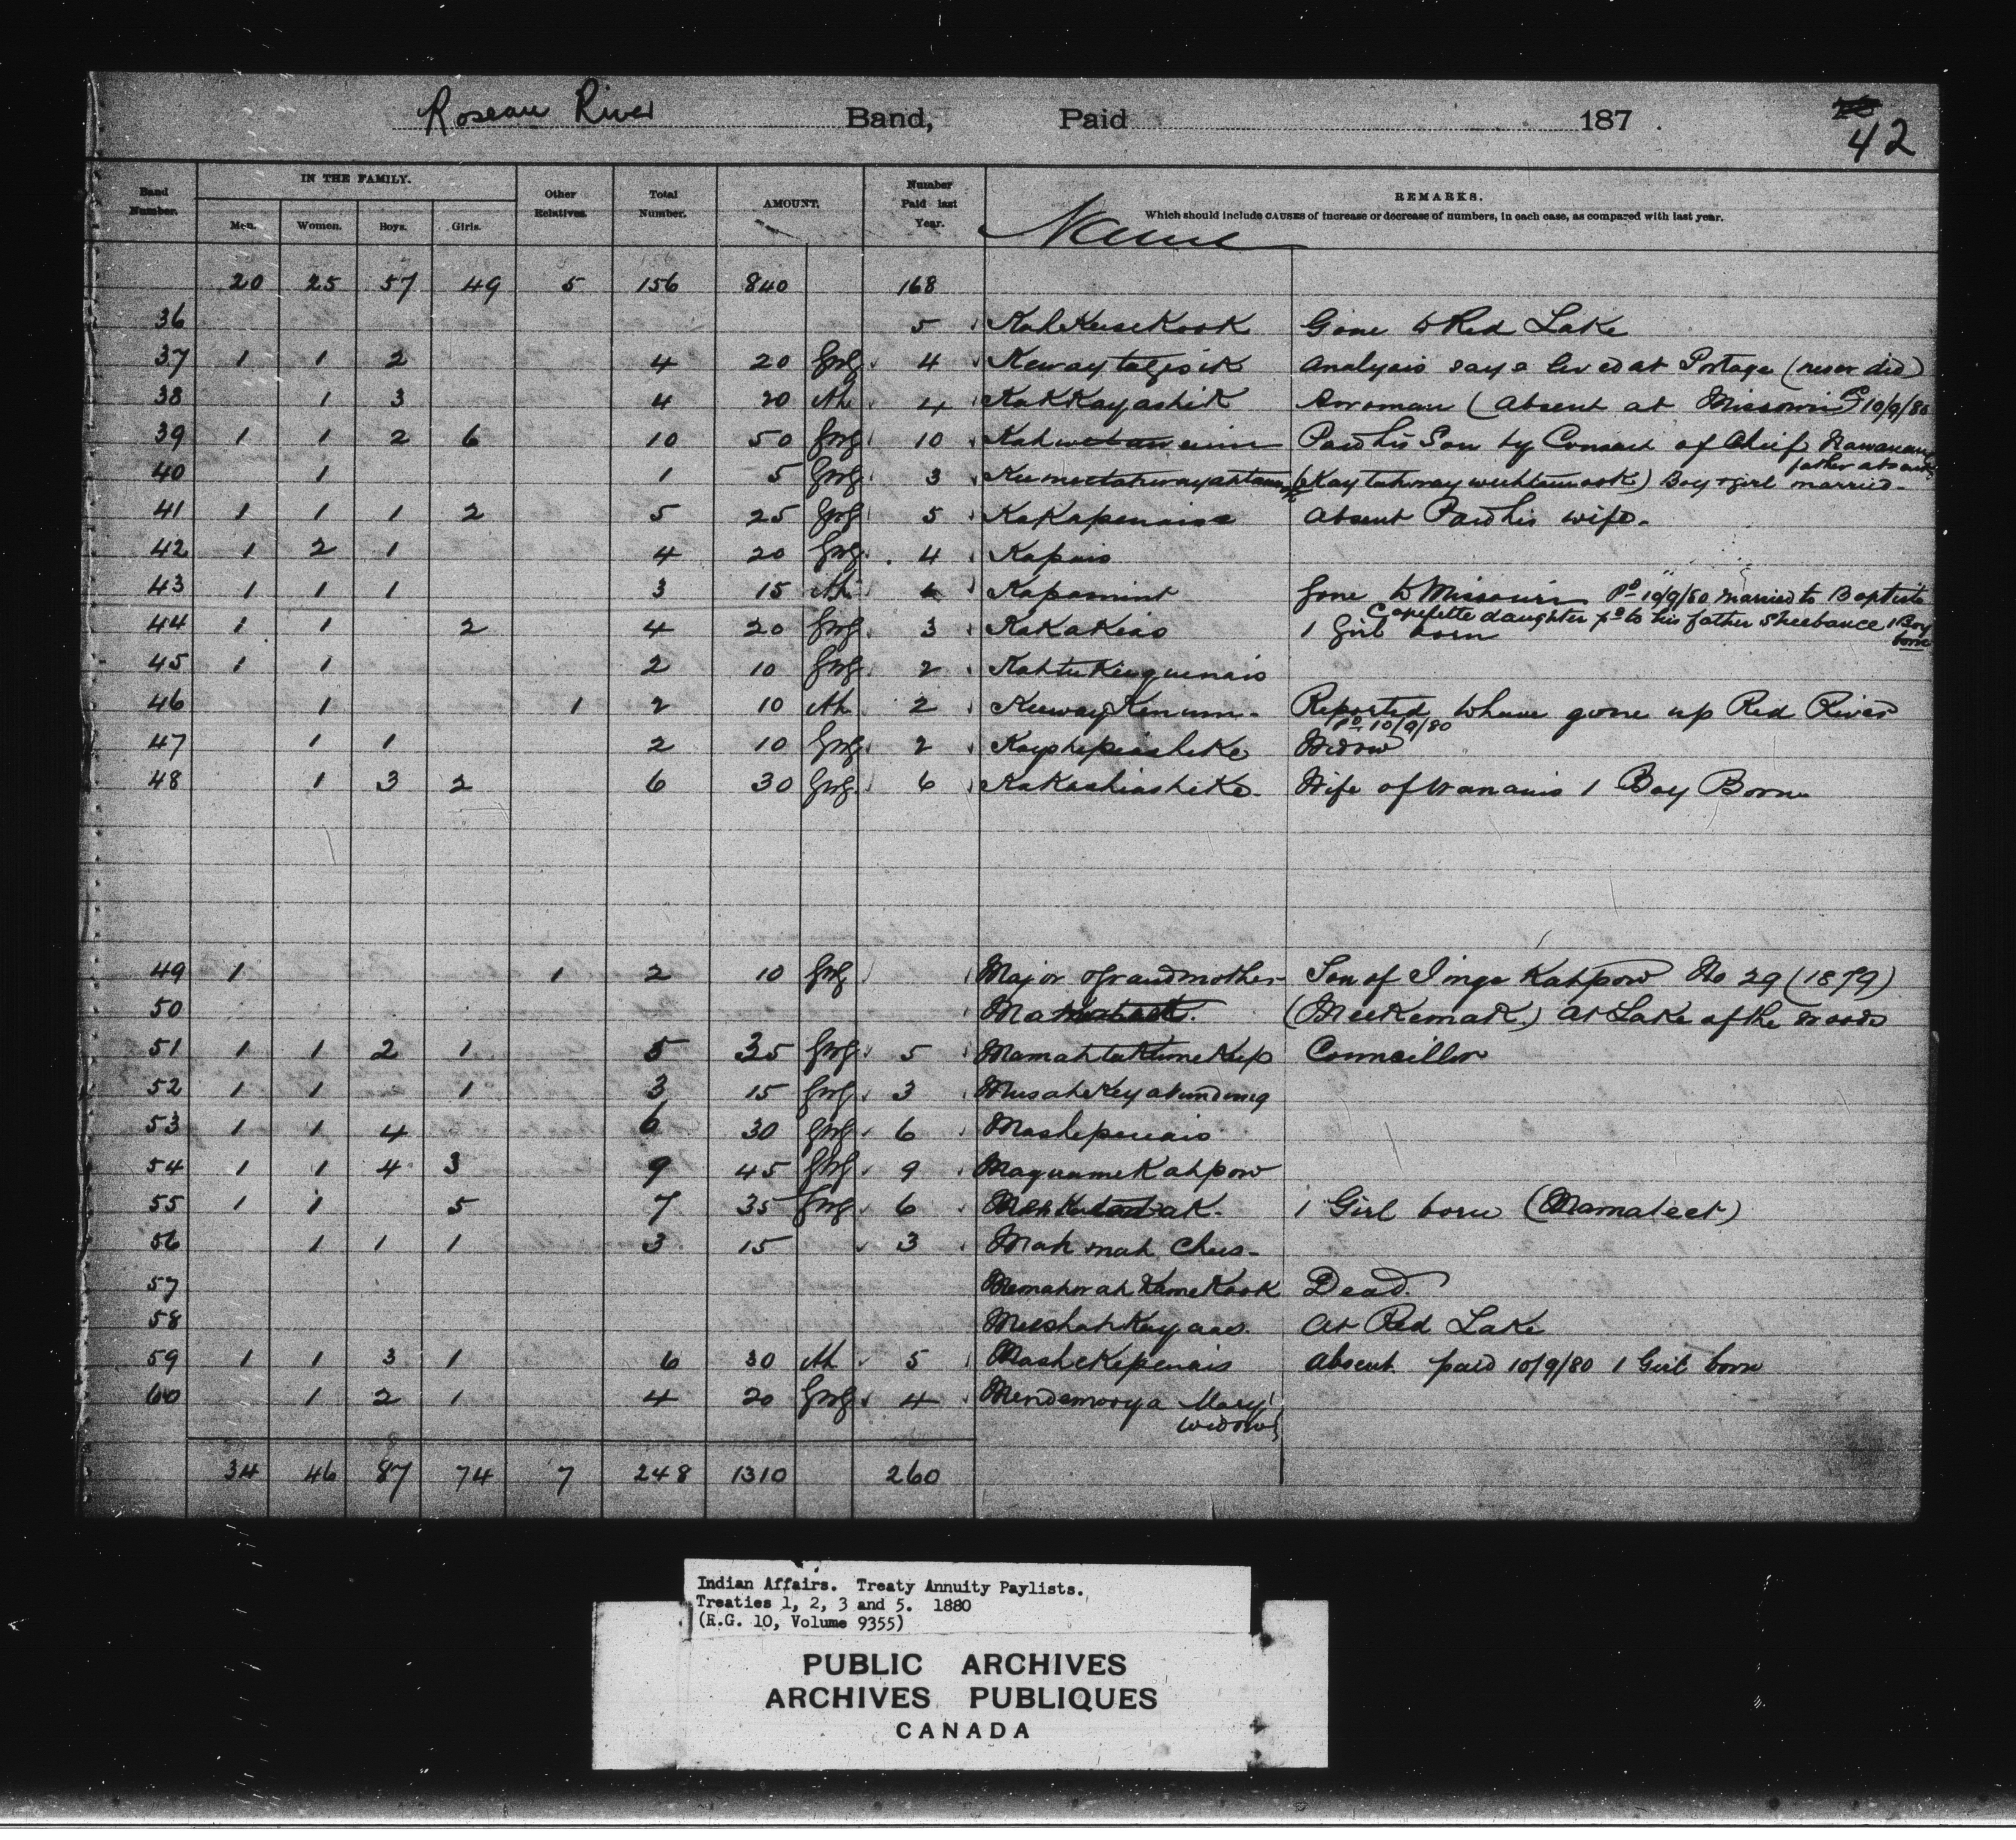 Roseau River Band, Paid 187 .
42
Band Number. IN THE FAMILY. Men. Women. Boys. Girls. Other Relatives. Total Number. AMOUNT. Number Paid last Year. Name REMARKS.
Which should include CAUSES of increase or decrease of numbers, in each case, as compared with last year.
20 25 57 49 5 156 840 168
36 5 Gone to Red Lake
37 1 1 2 4 20 4 Analysis says lived at Portage (never did)
38 1 3 4 20 Ah 4 Kakkayashik (Absent at Missouri Pd 10/9/80
39 1 1 2 6 10 50 10 Paid his Son by Consent of Chief
father absent
40 1 1 5 3 Boy & girl married
41 1 1 1 2 5 25 5 Kakapenaise Absent Paid his wife.
42 1 2 1 4 20 4 Kapais
43 1 1 1 3 15 Ah Kapamint Gone to Missouri Pd 10/9/80 Married to Baptiste
daughter pd to his father Sheebance 1 Boy born
44 1 1 2 4 20 3 Kakakeas 1 Girl born
45 1 1 2 10 2
46 1 1 2 10 Ah 2 Reported to have gone up Red River
Pd 10/9/80
47 1 1 2 10 2 Widow
48 1 3 2 6 30 6 Kakashiashike. Wife of Wananis 1 Boy Born
49 1 1 2 10 Major & Grandmother Son of Jinga Kahpow No 29 (1879)
50 (Meekemak) At Lake of the Woods
51 1 1 2 1 5 35 5 Councillor
52 1 1 1 3 15 3
53 1 1 4 6 30 6 Mashepenais
54 1 1 4 3 9 45 9 Maquamekahpow
55 1 1 5 7 35 6 1 Girl born (Mamateet)
56 1 1 1 3 15 3 Mah mah Chus
57 Memahwahkamekook Dead
58 At Red Lake
59 1 1 3 1 6 30 Ah 5 Mashekepenais Absent paid 10/9/80 1 Girl born
60 1 2 1 4 20 4 Mendemooya Mary
widow
34 46 87 74 7 248 1310 260
Indian Affairs. Treaty Annuity Paylists.
Treaties 1, 2, 3 and 5. 1880
(R.G. 10, Volume 9355)
PUBLIC ARCHIVES
ARCHIVES PUBLIQUES
CANADA